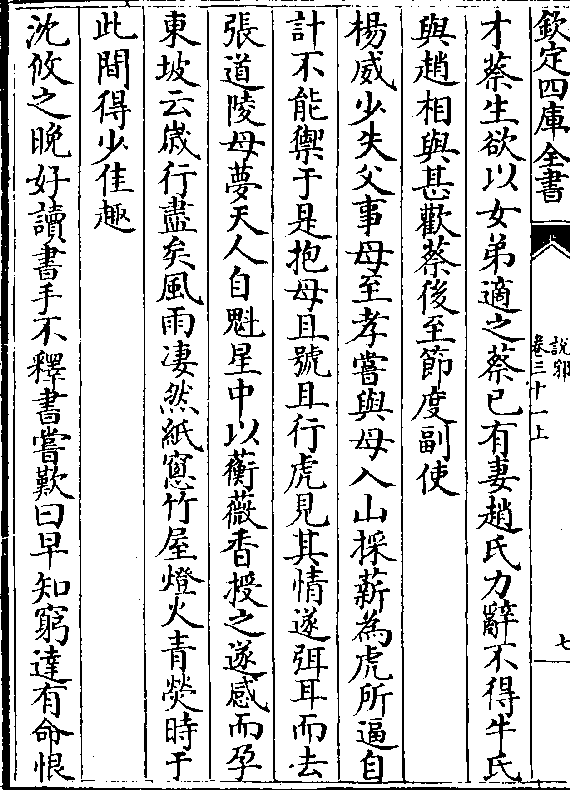 欽定四庫全書
說郛
卷三十一上
七
才蔡生欲以女弟適之蔡已有妻趙氏力辭不得牛氏
與趙相與甚歡蔡後至節度副使
楊威少失父事母至孝嘗與母入山採薪為虎所逼自
計不能禦于是抱母且號且行虎見其情遂弭耳而去
張道陵母夢天人自魁星中以蘅薇香授之遂感而孕
東坡云歲行盡矣風雨凄然紙窻竹屋燈火青熒時于
此間得少佳趣
沈攸之晚好讀書手不釋書嘗歎曰早知窮達有命恨